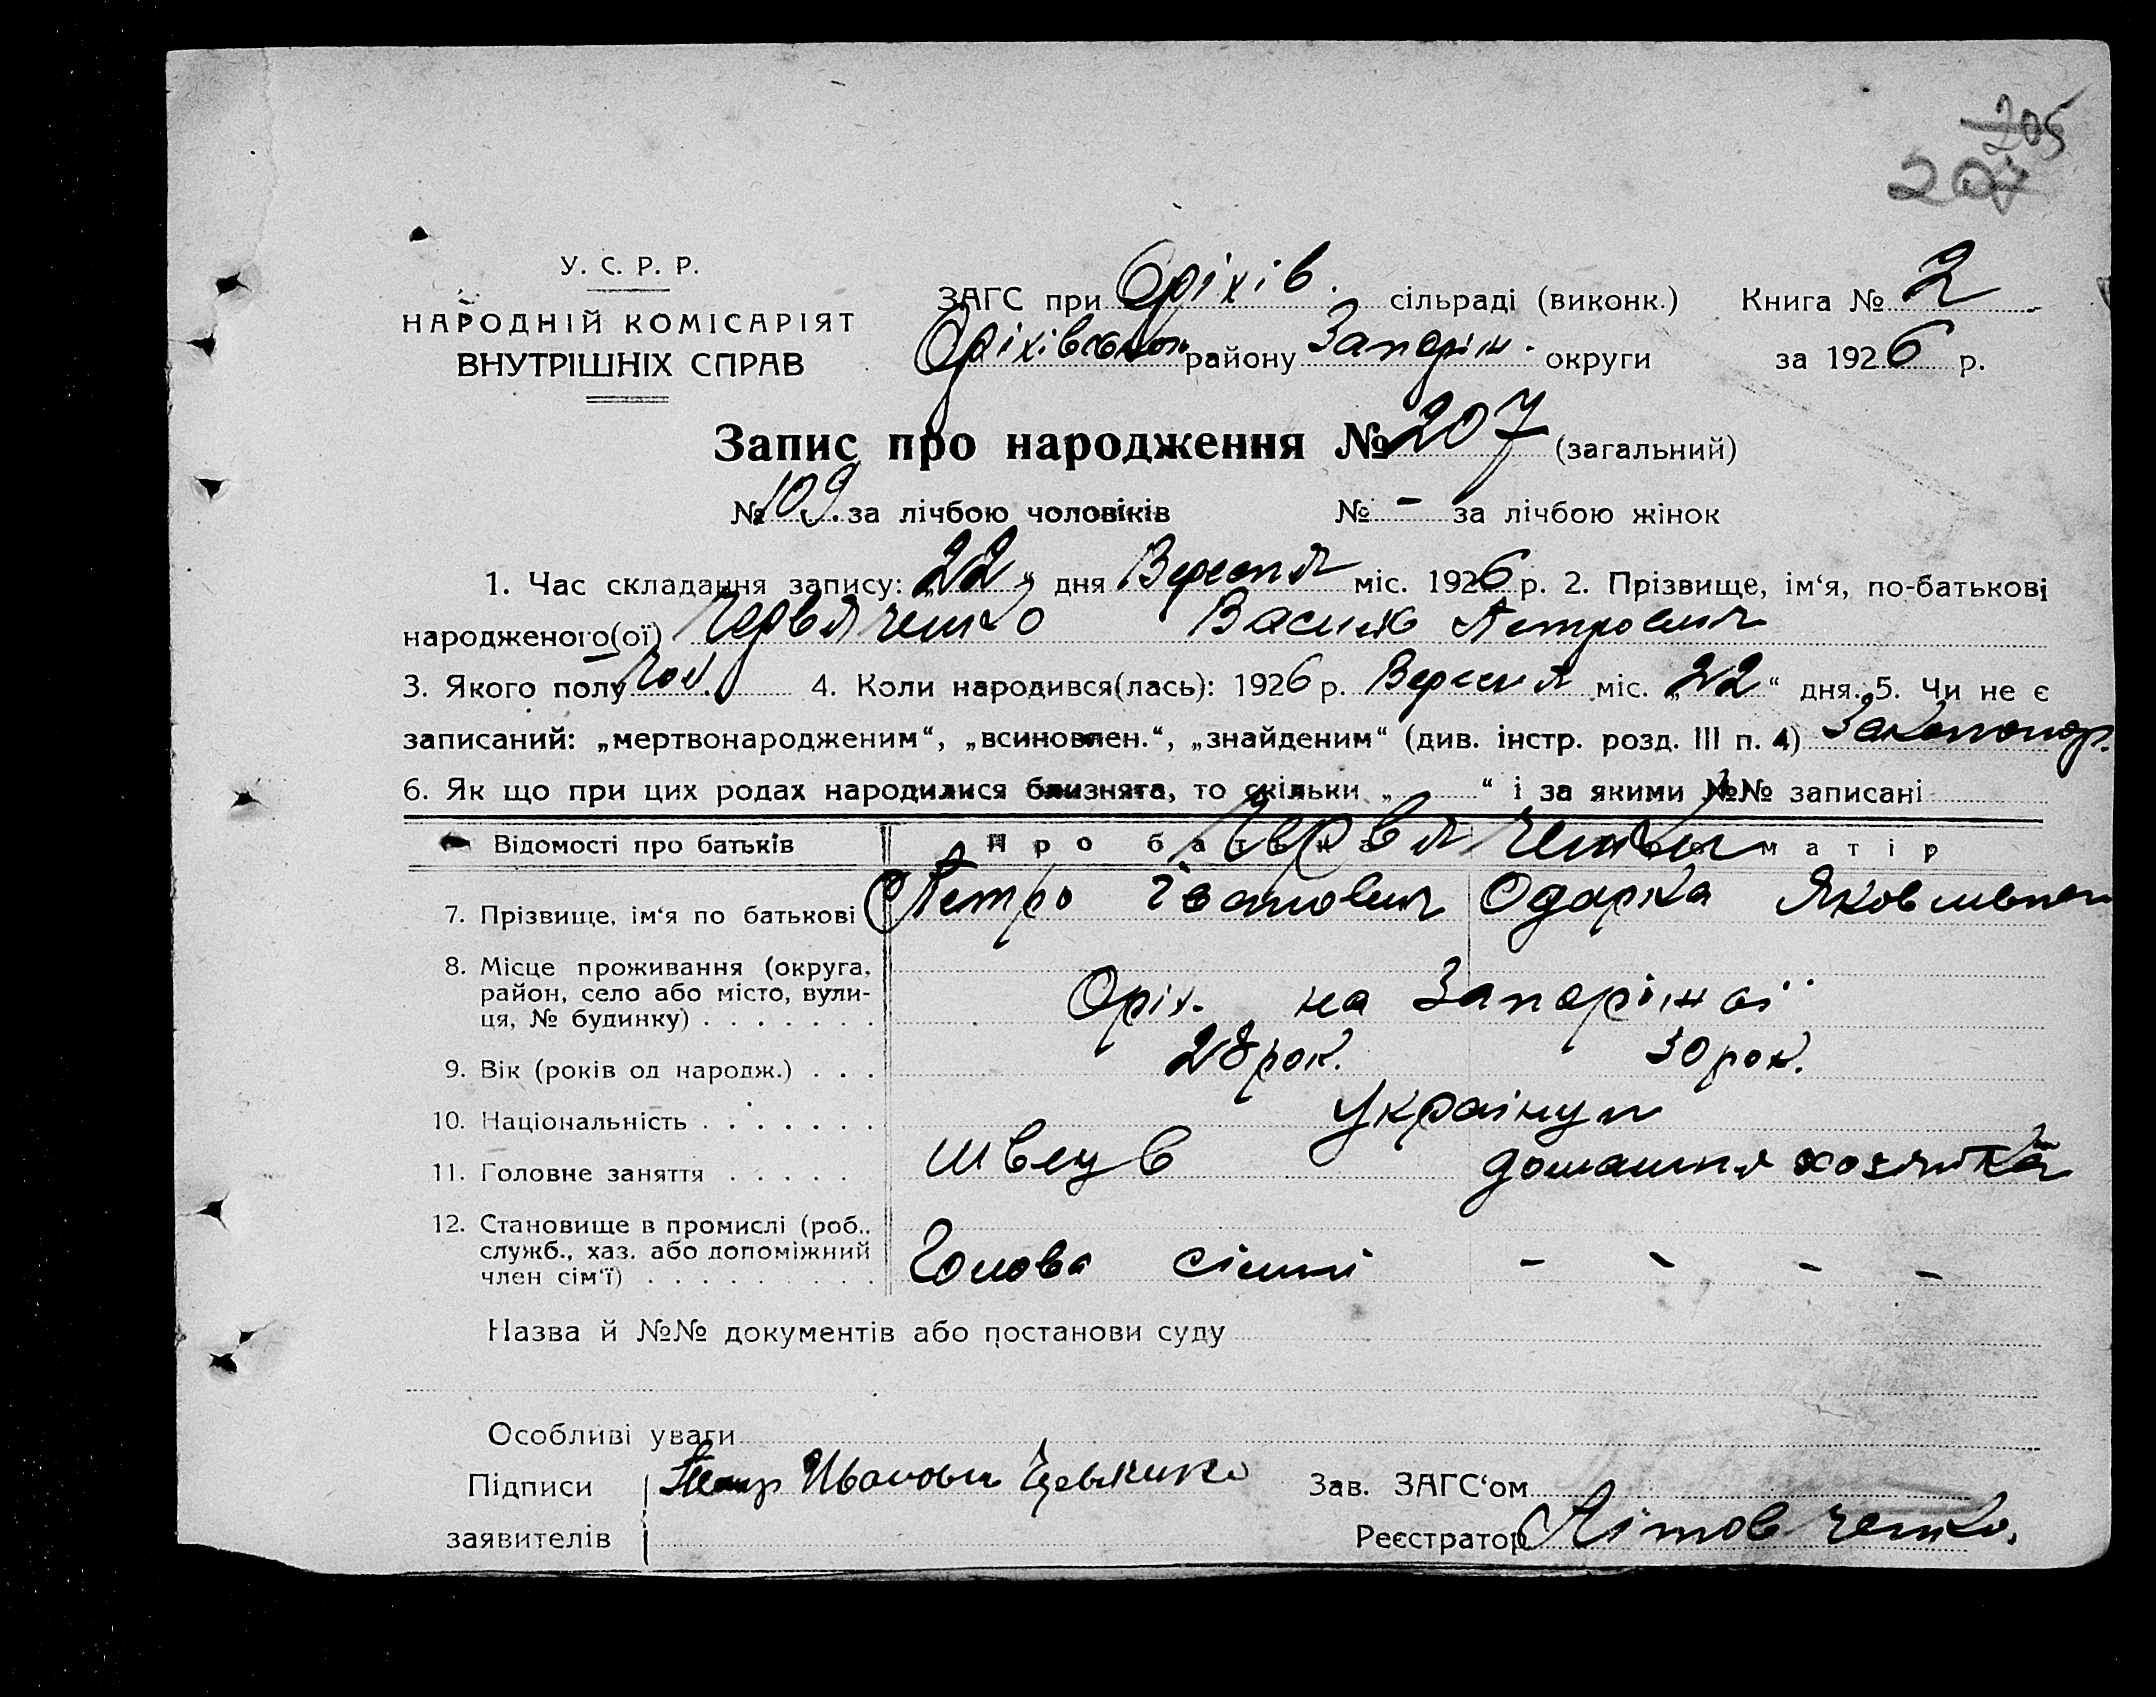 205
207
У. С. Р. Р.
НАРОДНІЙ КОМІСАРІЯТ
ВНУТРІШНІХ СПРАВ
ЗАГС при Оріхів. сільраді (виконк.) Книга № 2
Оріхівського району Запоріж. округи за 1926 р.
Запис про народження № 207 (загальний)
№ 109. за лічбою чоловіків № - за лічбою жінок
1. Час складання запису: „22“ дня Вересня міс. 1926 р. 2. Прізвище, ім‘я, по-батькові
народженого(ої) Червяченко Василь Петрович
3. Якого полу Чол. 4. Коли народився(лась): 1926 р. Вересня міс. „22“ дня. 5. Чи не є
записаний: „мертвонародженим“, „всиновлен.“, „знайденим“ (див. інстр. розд. III п. 4)
6. Як що при цих родах народилися близнята, то скільки „ “ і за якими №№ записані
Відомості про батьків Про батька Про матір
Червяченки
7. Прізвище, ім‘я по батькові Петро Іванович Одарка Яковлевна
8. Місце проживання (округа, район, село або місто, вулиця, № будинку) Оріх. на Запоріжсі
9. Вік (років од народж.) 28 рок. 30 рок.
10. Національність Українци
11. Головне заняття швець домашня хозяйка
12. Становище в промислі (роб., служб., хаз. або допоміжний член сім‘ї) Голова сімї - - - -
Назва й №№ документів або постанови суду
Особливі уваги
Підписи заявителів Иванови Зав. ЗАГС‘ом
Реєстратор Літовченко.